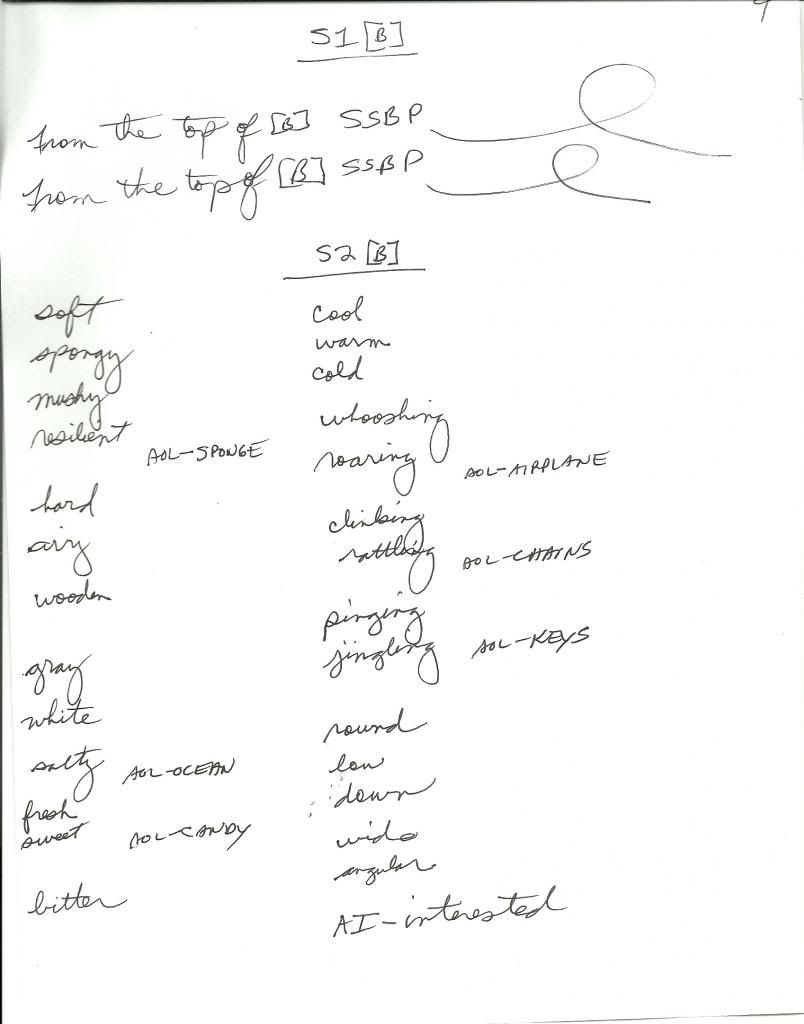 9
S1 [B]
from the top of [B] SSBP
from the top of [B] SSBP
S2 [B]
soft
spongy
mushy
resilient AOL-SPONGE
hard
airy
wooden
gray
white
salty AOL-OCEAN
fresh
sweet AOL-CANDY
bitter
cool
warm
cold
whooshing
roaring AOL-AIRPLANE
clinking
rattling AOL-CHAINS
pinging
jingling AOL-KEYS
round
low
down
wide
angular
AI-interested